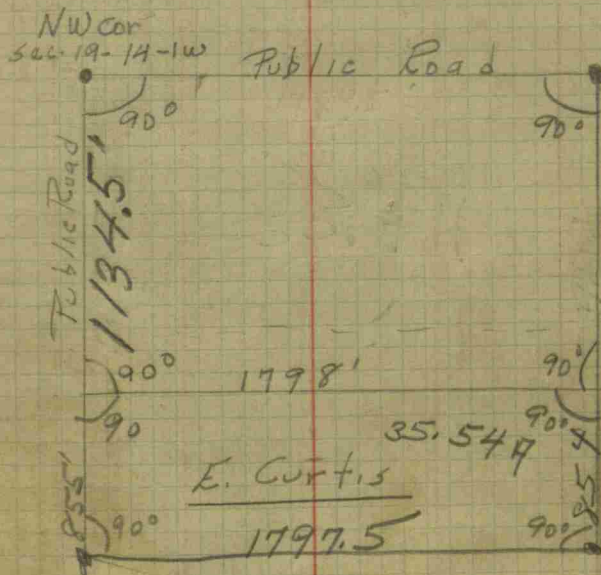 NW cor
Sec. 19-14-1W
Public Road
90°
90°
Public Road
1134.5'
90°
1798'
90°
90
90°
35.54 A
E. Curtis
855'
854
90°
1797.5
90°